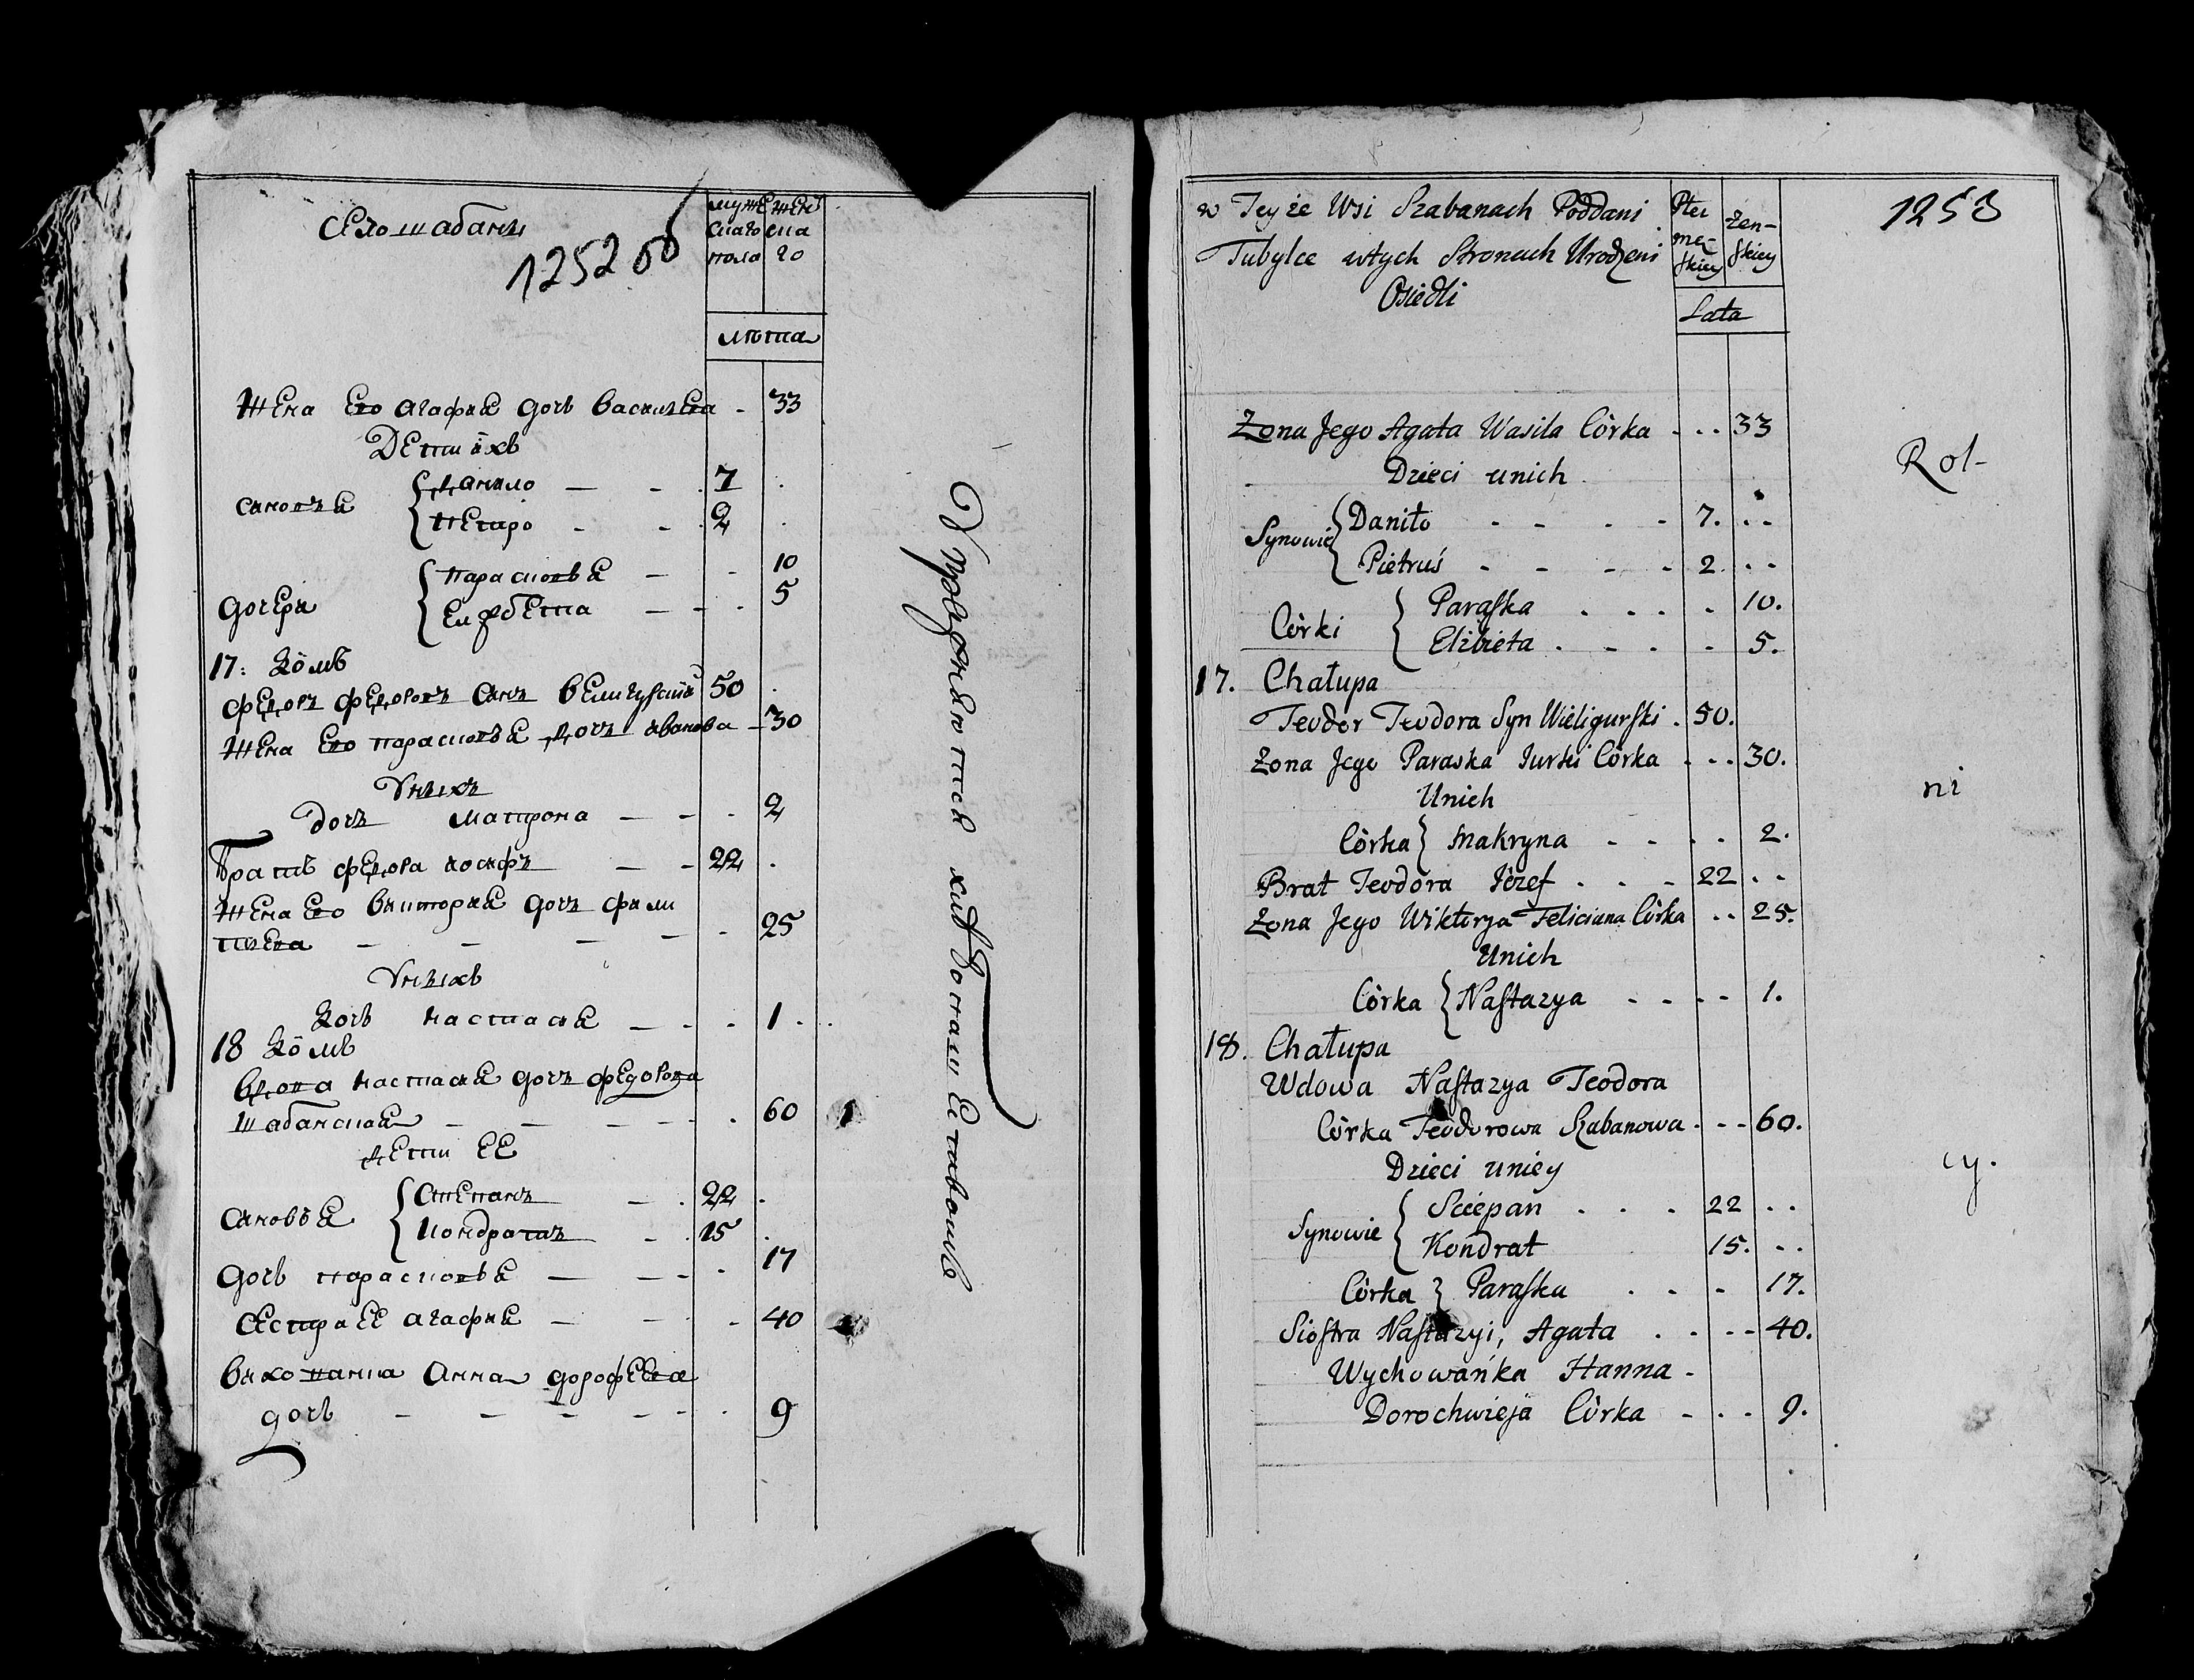 село шабаны
1252 об
мужеска го пола
женска го
лѣта
жена Его агафиа дочь васильева - 33
Дети ихъ
сыновья { данило — - 7
петро - - 2
дочери { парасковья — - 10
елизбета — - - 5
17: Домъ
федоръ федоровъ сынъ велигурский 50
жена Его парасковья дочь иванова - 30
Уныхъ
дочь матрона — - - 2
братъ федора иосифъ — - 22
жена Его виктория дочь фили
пова — - - - - 25
Унихъ
дочь настасья — - - 1
18 Домъ
вдова настасья дочь федорова
шабанская — - - - - 60
дети ЕЕ
сыновья { степанъ — - 22
кондратъ - 15
дочь парасковья — - - - 17
сестра ЕЕ агафиа — - - 40
выхованка Анна дорофеева
дочь - - - - - 9
Упражняются хлебопашествомъ
w Teyże Wsi Szabanach Poddani
Tubylce w tych Stronach Urodzeni
Osiedli
Płci mę-skiey
żen-skiey
Lata
1253
Żona Jego Agata Wasila Córka - .. 33
Dzieci unich
Synowie { Daniło - - - - 7. ..
Pietruś - - - - 2. ..
Córki { Paraska . . . - 10.
Elżbieta . - - - 5.
17. Chałupa
Teodor Teodora Syn Wieligurski . 50.
Żona Jego Paraska Jurki Córka - .. 30.
Unich
Córka } Makryna - - . . 2.
Brat Teodora Józef . . - 22 . -
Żona Jego Wiktorja Feliciana Córka .. 25.
Unich
Córka } Nastazya - - - - 1.
18. Chałupa
Wdowa Nastazya Teodora
Córka Teodorowa Szabanowa . - - 60.
Dzieci uniey
Synowie { Sciepan . . . 22 . .
Kondrat 15. - .
Córka } Paraska . . - 17.
Siostra Nastazyi, Agata . . - - 40.
Wychowańka Hanna -
Dorochwieja Córka - . - 9.
Rol-
ni
cy.